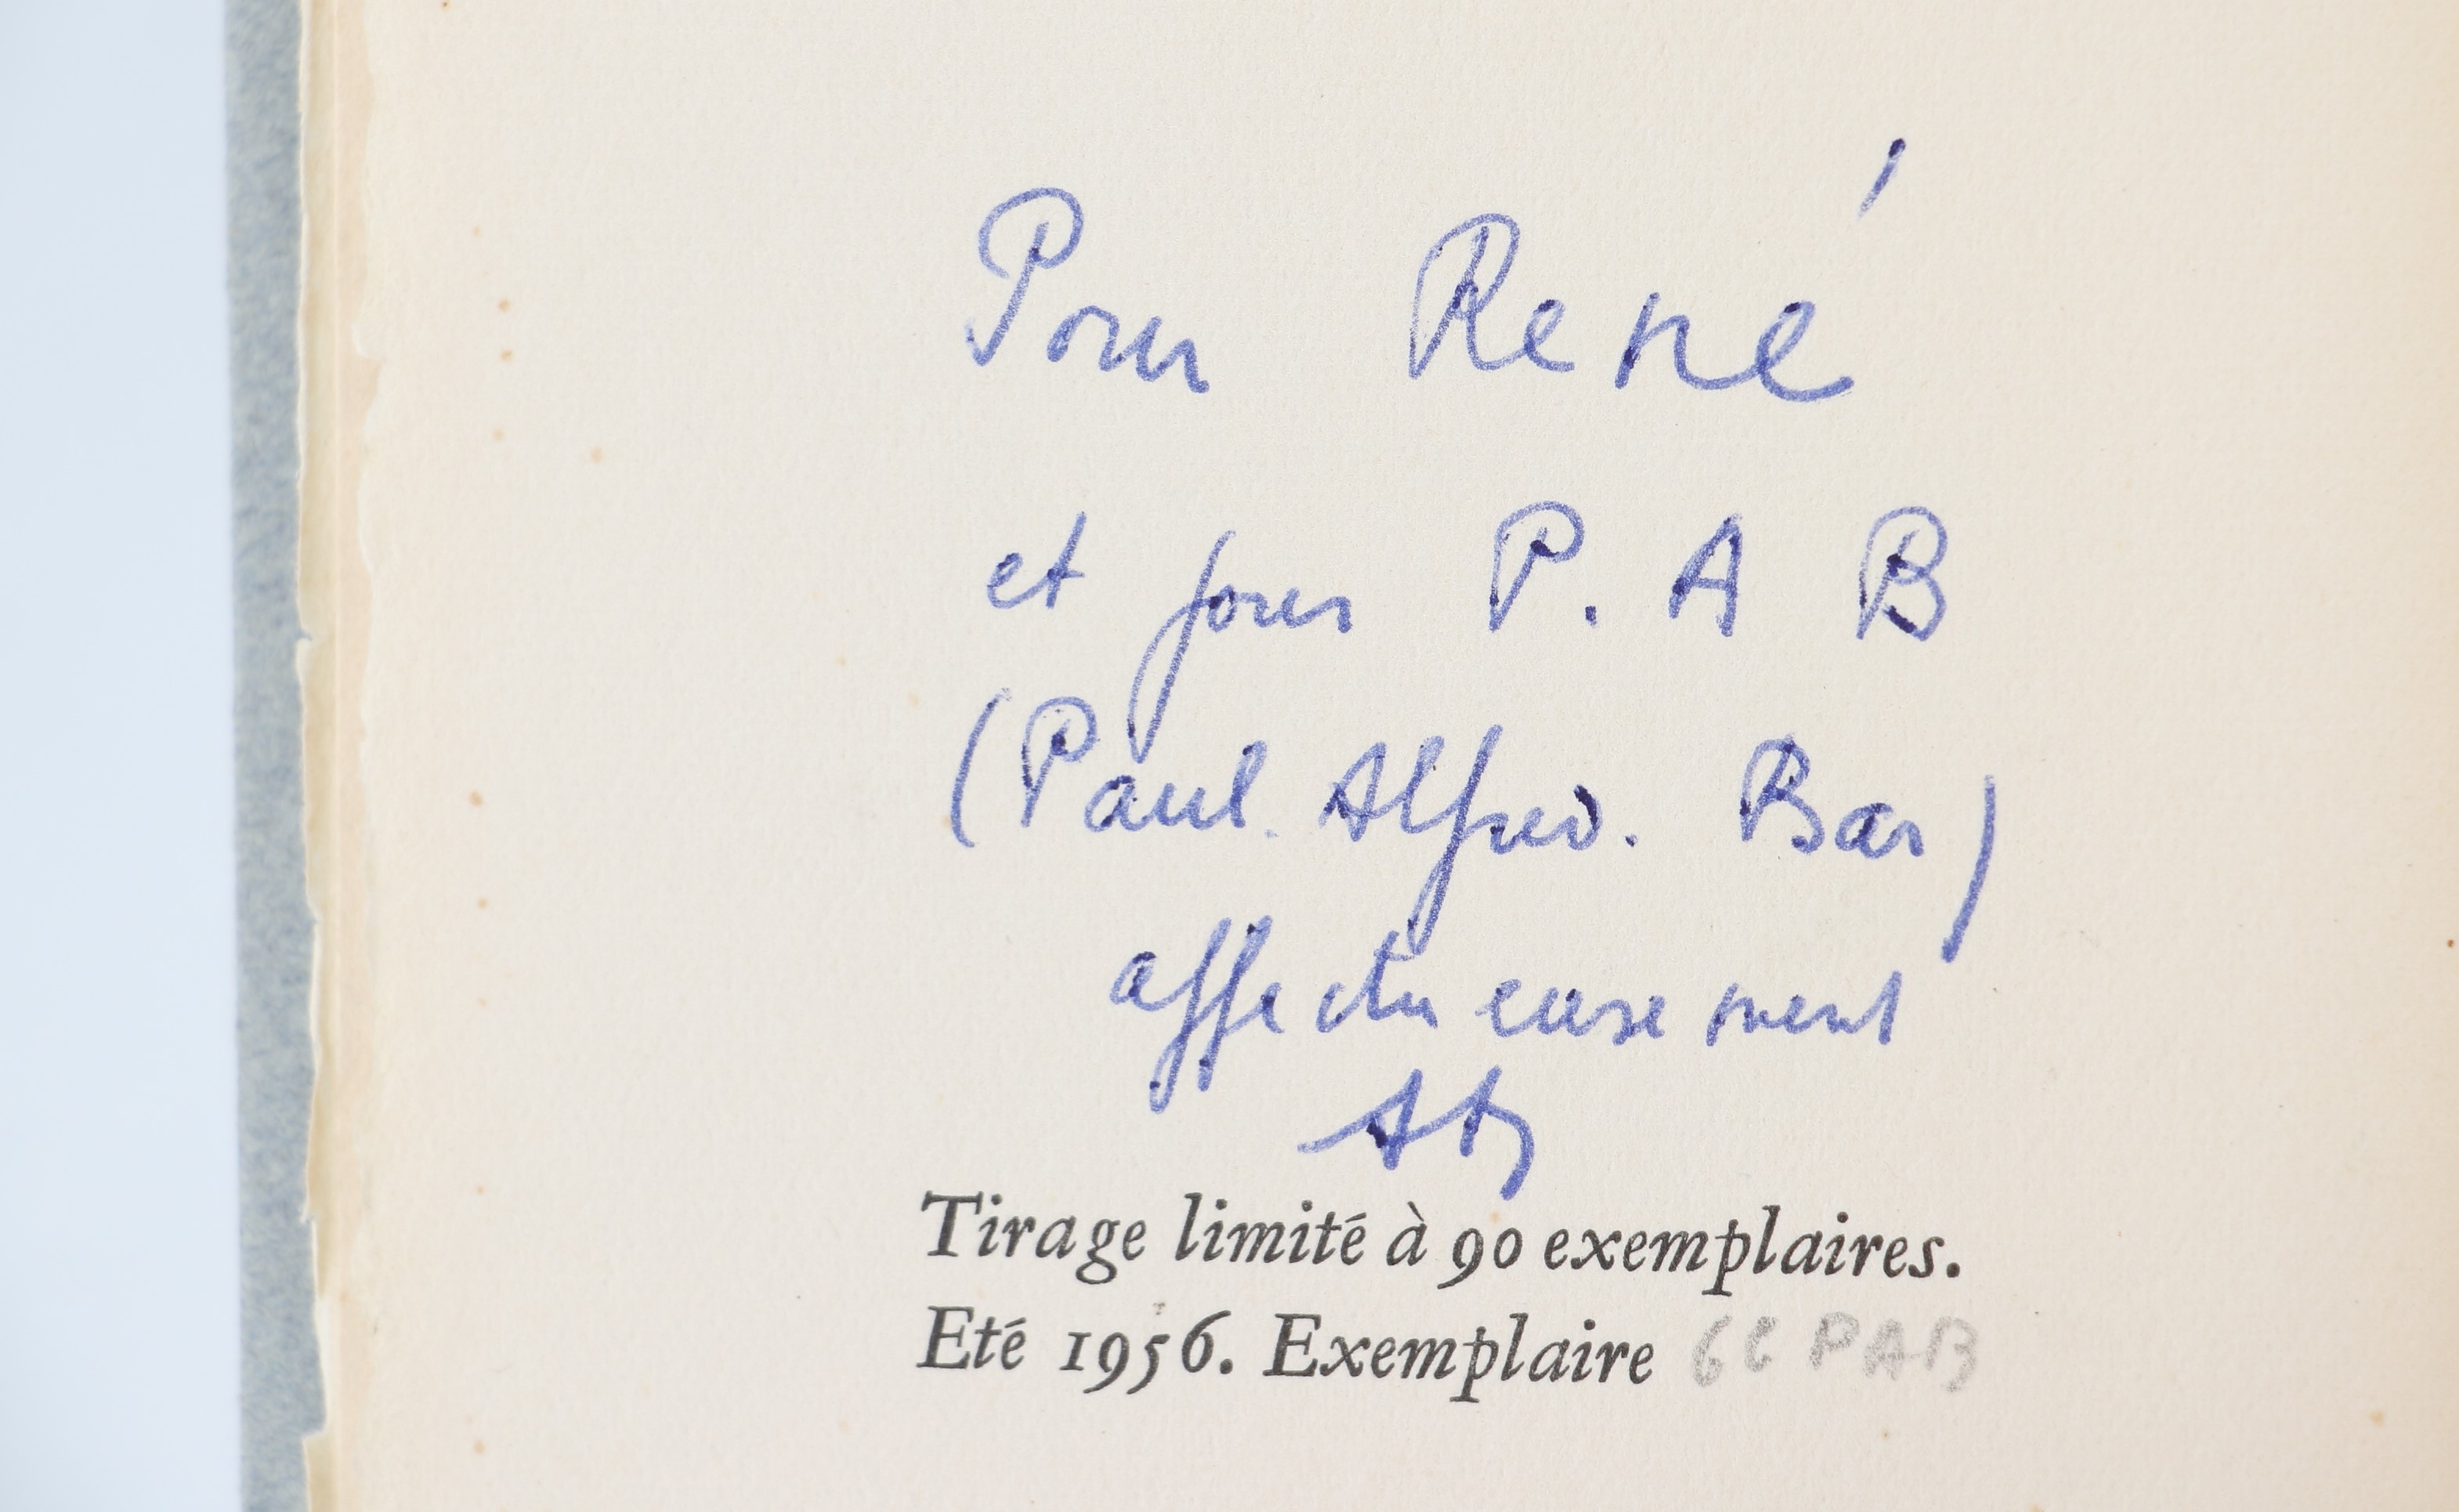 Pour René
et pour P. A B
(Paul. Alfred. Bar)
affectueusement
Tirage limité à 90 exemplaires.
Eté 1956. Exemplaire PAB